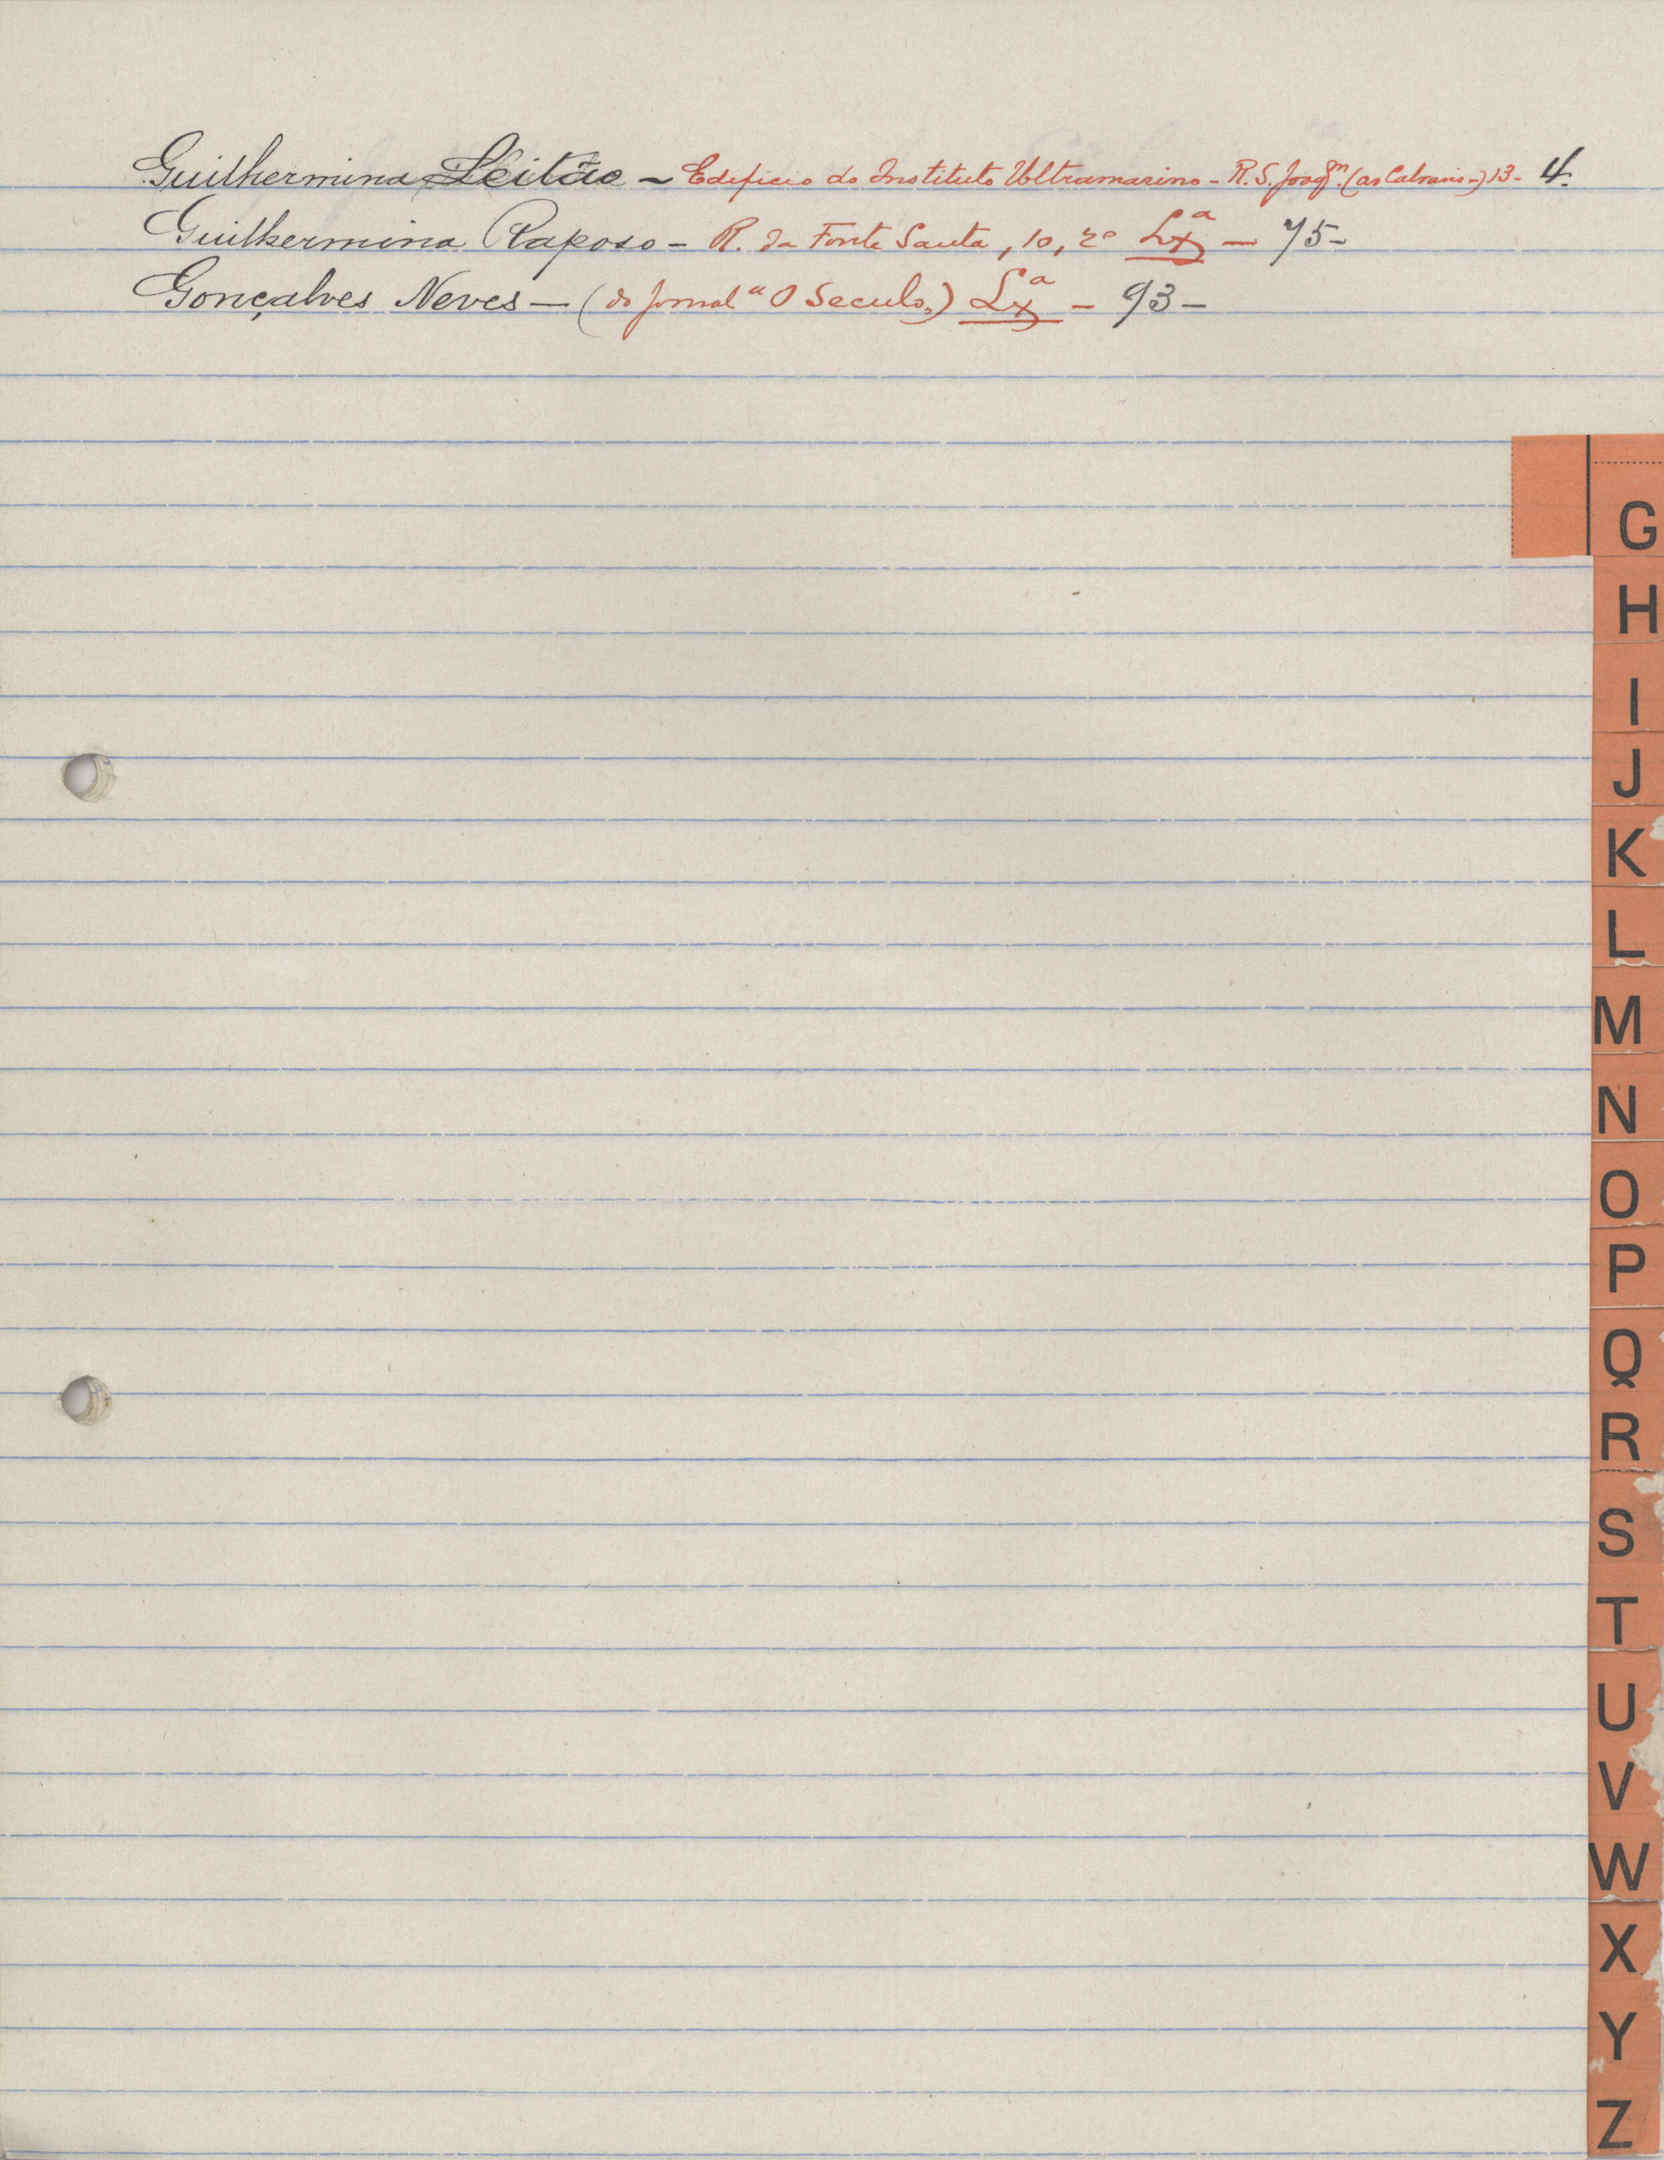 Guilhermina Leitão - Edificio do Instituto Ultramarino - R. S. Joaqm. (ao Calvario -) 13 - 4.
Guilhermina Raposo - R. da Fonte Santa, 10, 2º Lxª - 75 -
Gonçalves Neves - (do jornal "O Seculo,,) Lxª - 93 -
G
H
I
J
K
L
M
N
O
P
Q
R
S
T
U
V
W
X
Y
Z